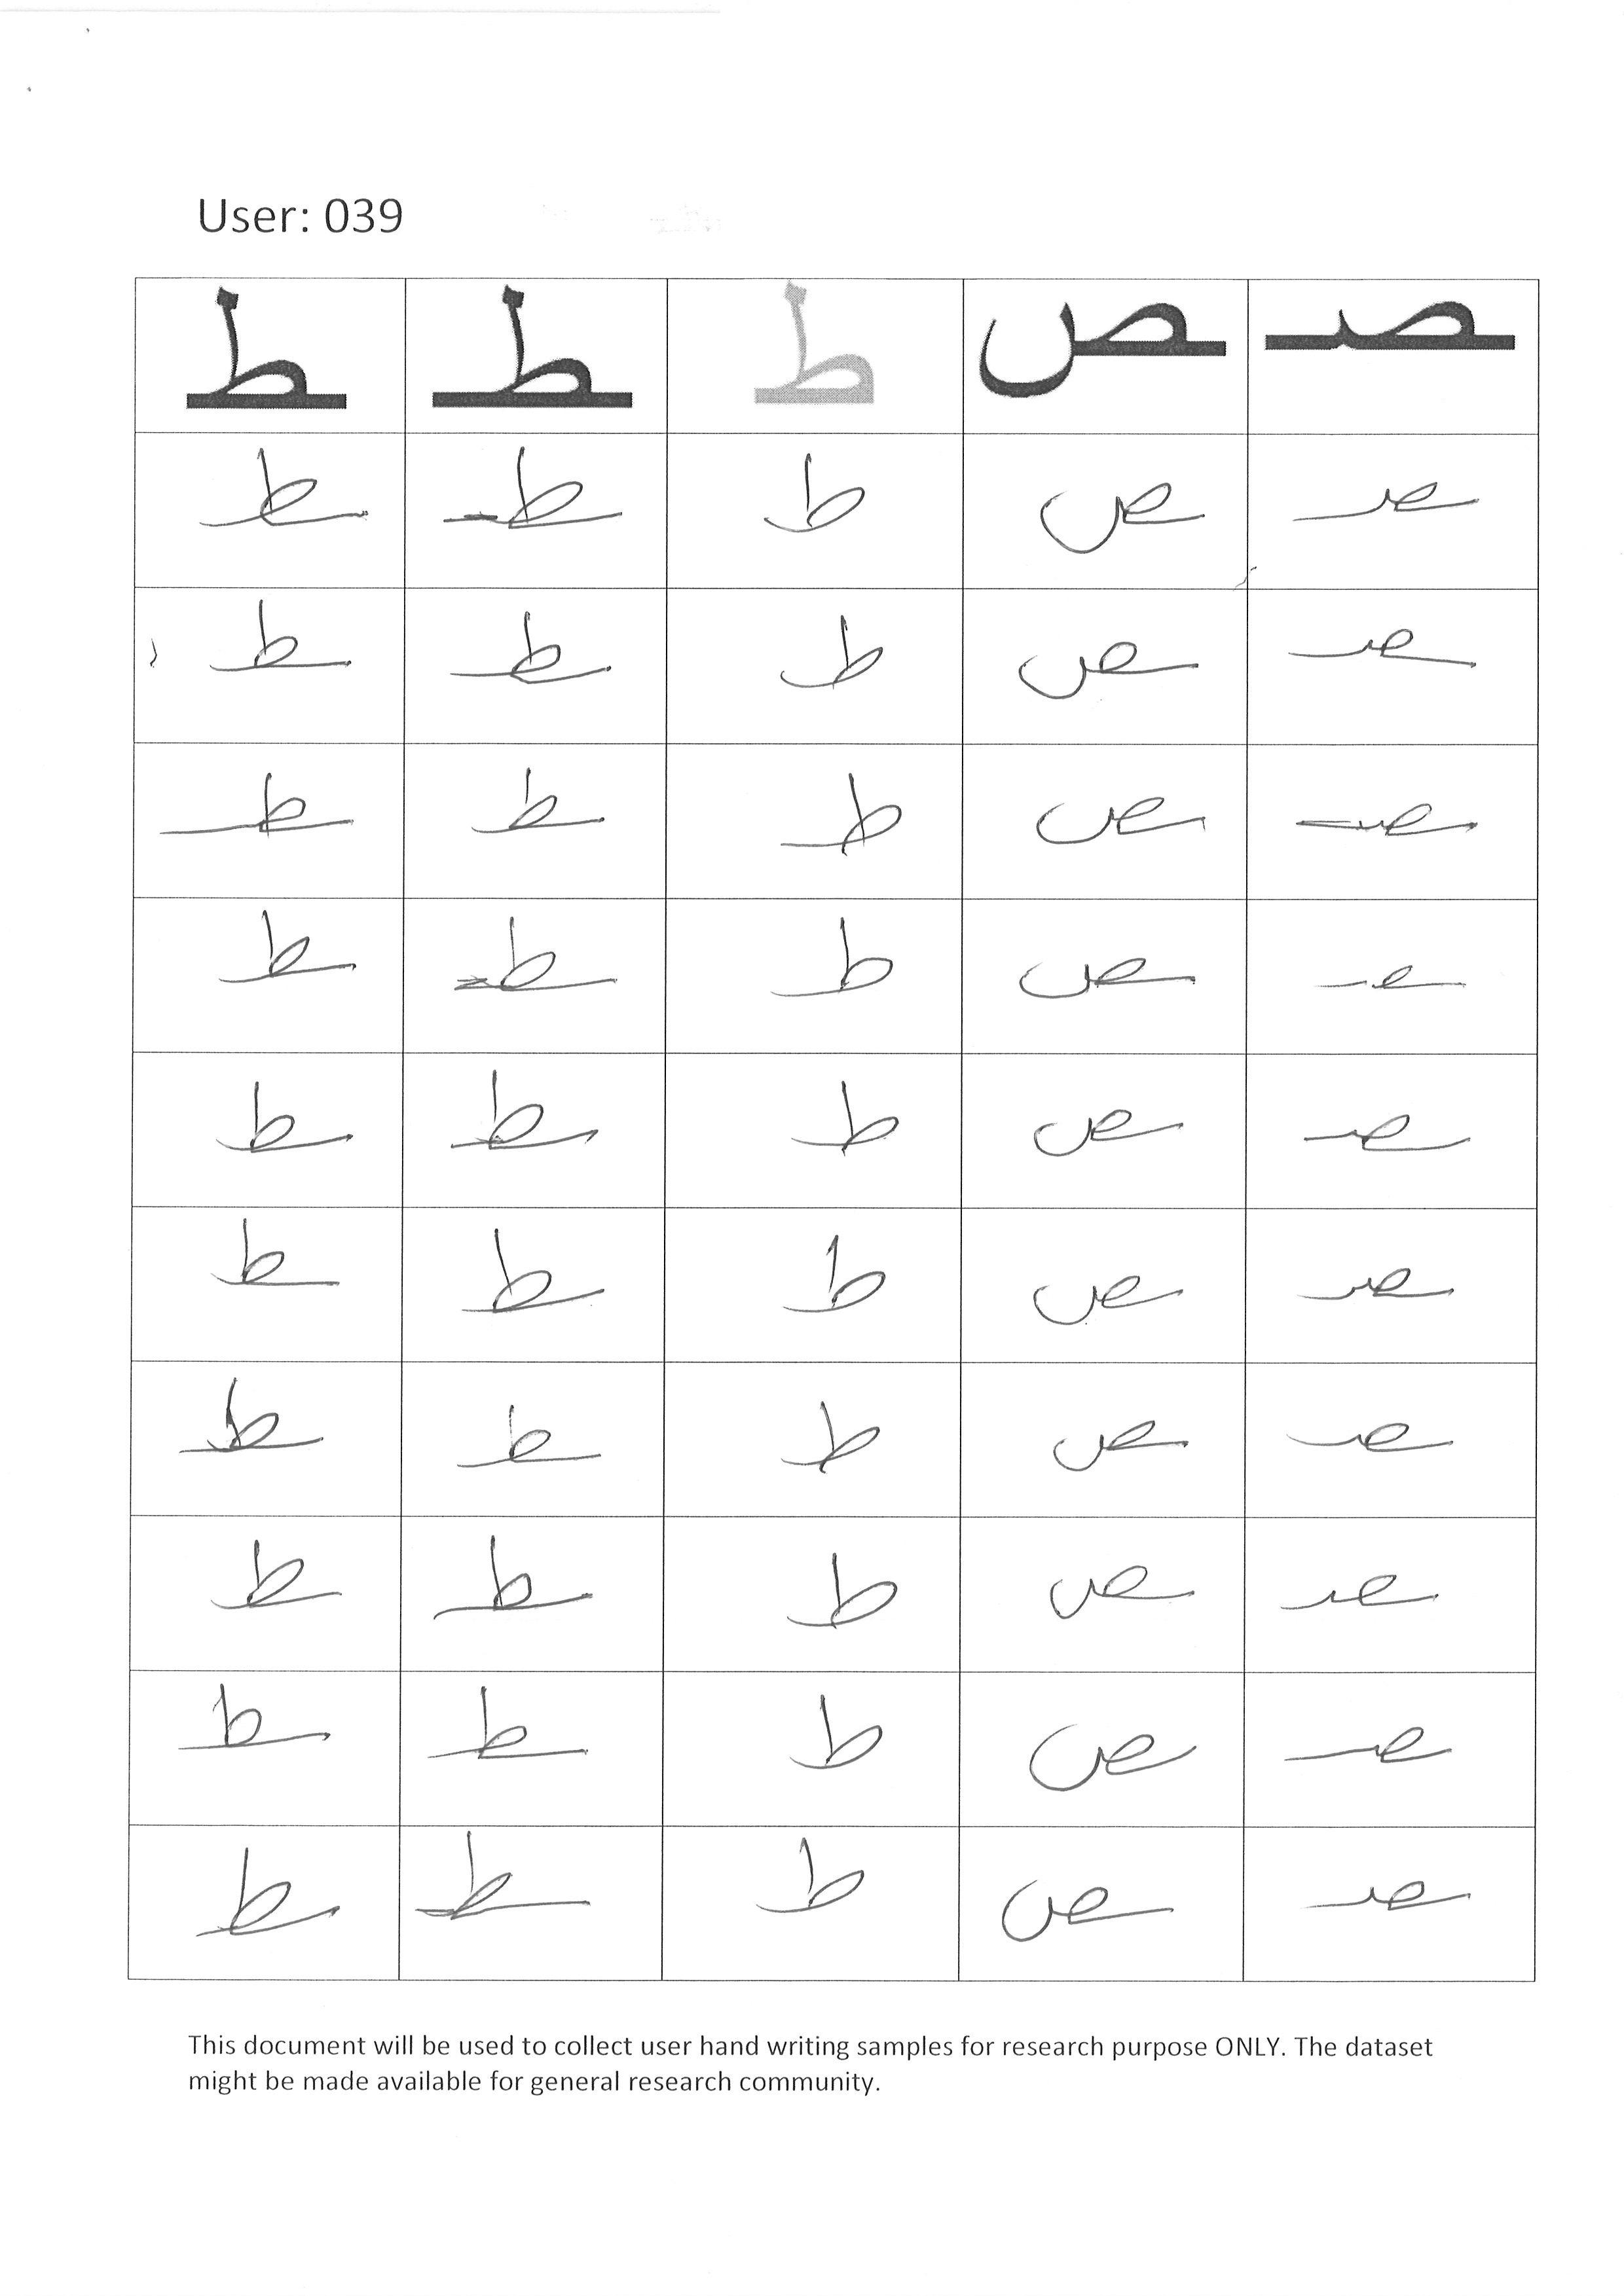 User: 039
ط ـطـ ط ـص ـصـ
ط ـطـ ط ـص ـصـ
ط ـطـ ط ـص ـصـ
ط ـطـ ط ـص ـصـ
ط ـطـ ط ـص ـصـ
ط ـطـ ط ـص ـصـ
ط ـطـ ط ـص ـصـ
ط ـطـ ط ـص ـصـ
ط ـطـ ط ـص ـصـ
ط ـطـ ط ـص ـصـ
ط ـطـ ط ـص ـصـ
This document will be used to collect user hand writing samples for research purpose ONLY. The dataset
might be made available for general research community.